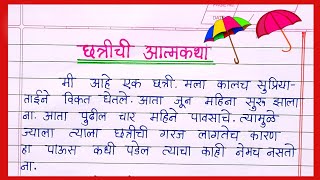 छत्रीची आत्मकथा
मी आहे एक छत्री. मला कालच सुप्रिया-
ताईने विकत घेतले. आता जून महिना सुरू झाला
ना. आता पुढील चार महिने पावसाचे. त्यामुळे
ज्याला त्याला छत्रीची गरज लागतेच कारण
हा पाऊस कधी पडेल त्याचा काही नेमच नसतो
ना.